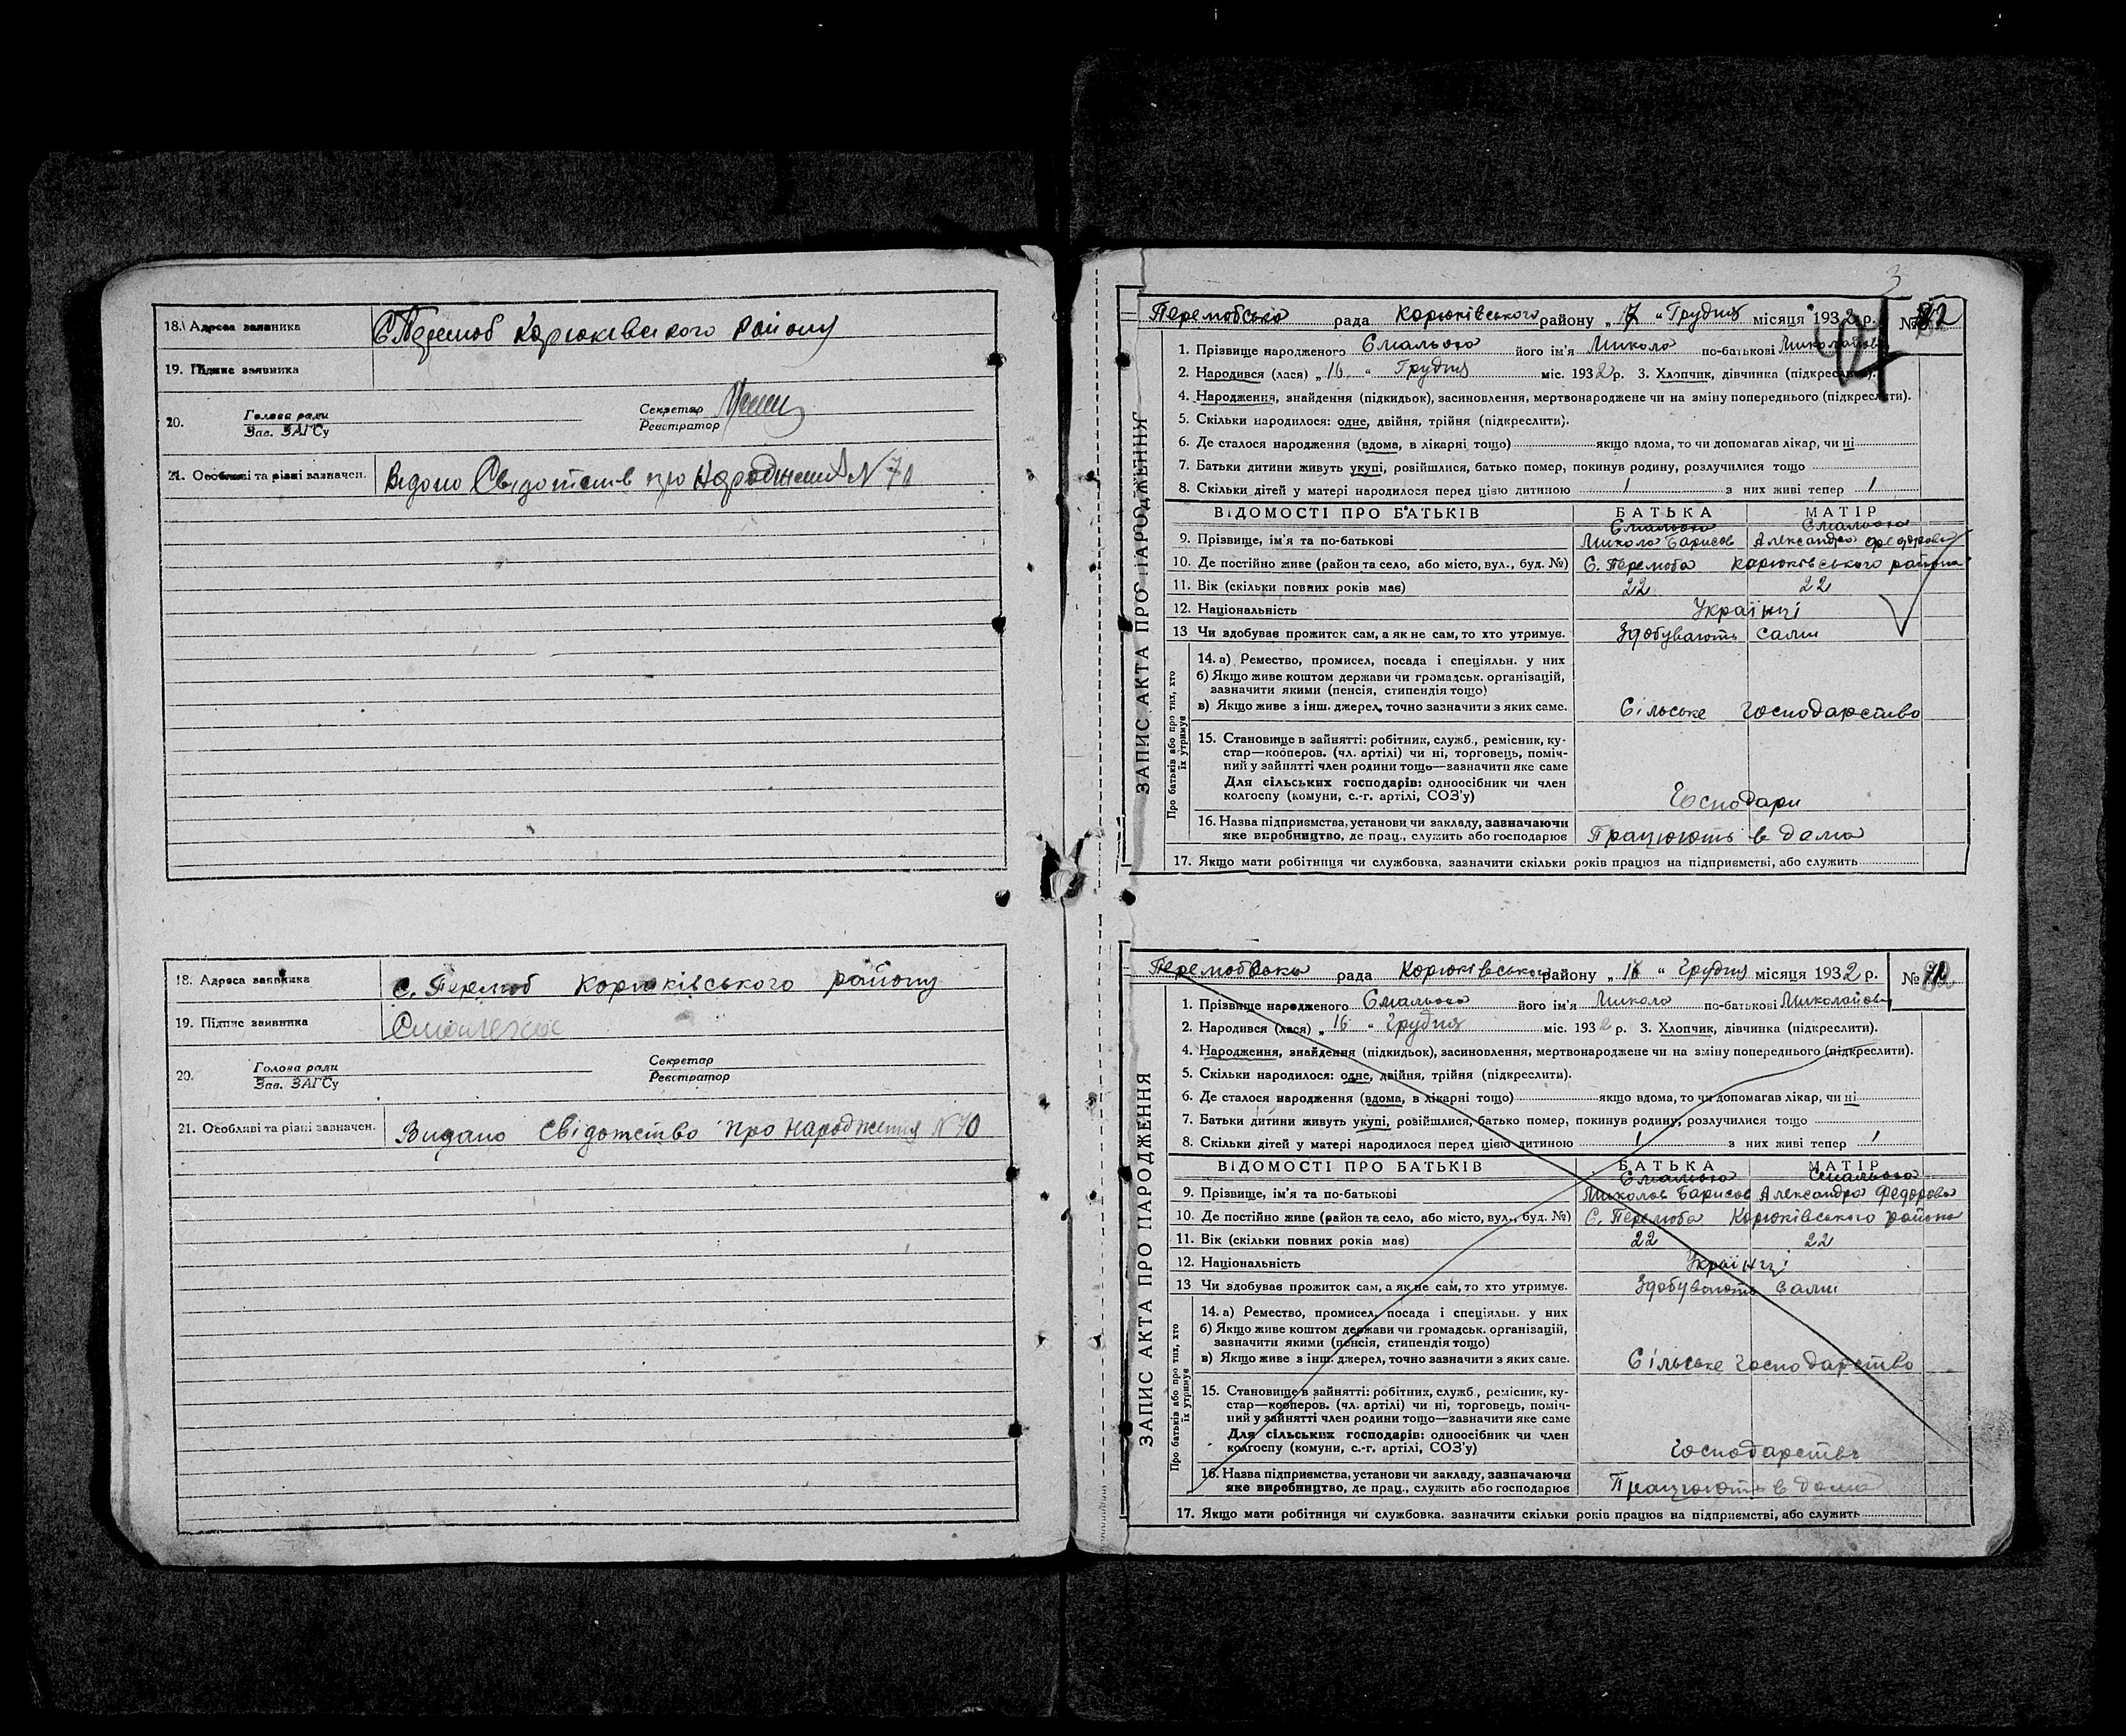 18. Адреса заявника С Перемоб Корюківського району
19. Підпис заявника
20. Голова ради Зав. ЗАГСу Секретар Реєстратор
21. Особливі та різні зазначен. Видано Свідотств про Народження N 71
18. Адреса заявника с. Перемоб Корюківського району
19. Підпис заявника
20. Голова ради Зав. ЗАГСу Секретар Реєстратор
21. Особливі та різні зазначен. Видано Свідотство про народження N 70
3
ЗАПИС АКТА ПРО НАРОДЖЕННЯ
Перемобська рада Корюківського району „ 17 “ Грудня місяця 1932 р. №
1. Прізвище народженого його ім'я Микола по-батькові Миколайов
2. Народився (лася) „ 16 “ Грудня міс. 1932 р. 3. Хлопчик, дівчинка (підкреслити).
4. Народження, знайдення (підкидьок), засиновлення, мертвонароджене чи на зміну попереднього (підкреслити).
5. Скільки народилося: одне, двійня, трійня (підкреслити).
6. Де сталося народження (вдома, в лікарні тощо) якщо вдома, то чи допомагав лікар, чи ні
7. Батьки дитини живуть укупі, розійшлися, батько помер, покинув родину, розлучилися тощо
8. Скільки дітей у матері народилося перед цією дитиною 1 з них живі тепер 1
ВІДОМОСТІ ПРО БАТЬКІВ БАТЬКА МАТІР
9. Прізвище, ім'я та по-батькові Микола Барисов Александра Федорова
10. Де постійно живе (район та село, або місто, вул., буд. №) С. Перемоба Карюківського района
11. Вік (скільки повних років має) 22 22
12. Національність Українці
13 Чи здобуває прожиток сам, а як не сам, то хто утримує. Здобувають сами
Про батьків або про тих, хто їх утримує
14. а) Ремество, промисел, посада і спеціяльн. у них
б) Якщо живе коштом держави чи громадськ. організацій,
зазначити якими (пенсія, стипендія тощо)
в) Якщо живе з інш. джерел, точно зазначити з яких саме. Сільське господарство
15. Становище в зайнятті: робітник, служб., ремісник, ку-
стар—кооперов. (чл. артілі) чи ні, торговець, поміч-
ний у зайнятті член родини тощо—зазначити яке саме
Для сільських господарів: одноосібник чи член
колгоспу (комуни, с.-г. артілі, СОЗ'у) Господари
16. Назва підприємства, установи чи закладу, зазначаючи
яке виробництво, де прац., служить або господарює Працюють в дома
17. Якщо мати робітниця чи службовка, зазначити скільки років працює на підприємстві, або служить
ЗАПИС АКТА ПРО НАРОДЖЕННЯ
рада Корюківського району „ 16 “ Грудня місяця 1932 р. №
1. Прізвище народженого його ім'я Микола по-батькові Миколайов
2. Народився (лася) „ 16 “ Грудня міс. 1932 р. 3. Хлопчик, дівчинка (підкреслити).
4. Народження, знайдення (підкидьок), засиновлення, мертвонароджене чи на зміну попереднього (підкреслити).
5. Скільки народилося: одне, двійня, трійня (підкреслити).
6. Де сталося народження (вдома, в лікарні тощо) якщо вдома, то чи допомагав лікар, чи ні
7. Батьки дитини живуть укупі, розійшлися, батько помер, покинув родину, розлучилися тощо
8. Скільки дітей у матері народилося перед цією дитиною 1 з них живі тепер 1
ВІДОМОСТІ ПРО БАТЬКІВ БАТЬКА МАТІР
9. Прізвище, ім'я та по-батькові Миколов Барисов Александра Федорова
10. Де постійно живе (район та село, або місто, вул., буд. №) С. Перемоба Корюківського района
11. Вік (скільки повних років має) 22 22
12. Національність Українці
13 Чи здобуває прожиток сам, а як не сам, то хто утримує. Здобувають сами
Про батьків або про тих, хто їх утримує
14. а) Ремество, промисел, посада і спеціяльн. у них
б) Якщо живе коштом держави чи громадськ. організацій,
зазначити якими (пенсія, стипендія тощо)
в) Якщо живе з інш. джерел, точно зазначити з яких саме. Сільське господарство
15. Становище в зайнятті: робітник, служб., ремісник, ку-
стар—кооперов. (чл. артілі) чи ні, торговець, поміч-
ний у зайнятті член родини тощо—зазначити яке саме
Для сільських господарів: одноосібник чи член
колгоспу (комуни, с.-г. артілі, СОЗ'у) Господарств
16. Назва підприємства, установи чи закладу, зазначаючи
яке виробництво, де прац., служить або господарює Працюють в дома
17. Якщо мати робітниця чи службовка, зазначити скільки років працює на підприємстві, або служить